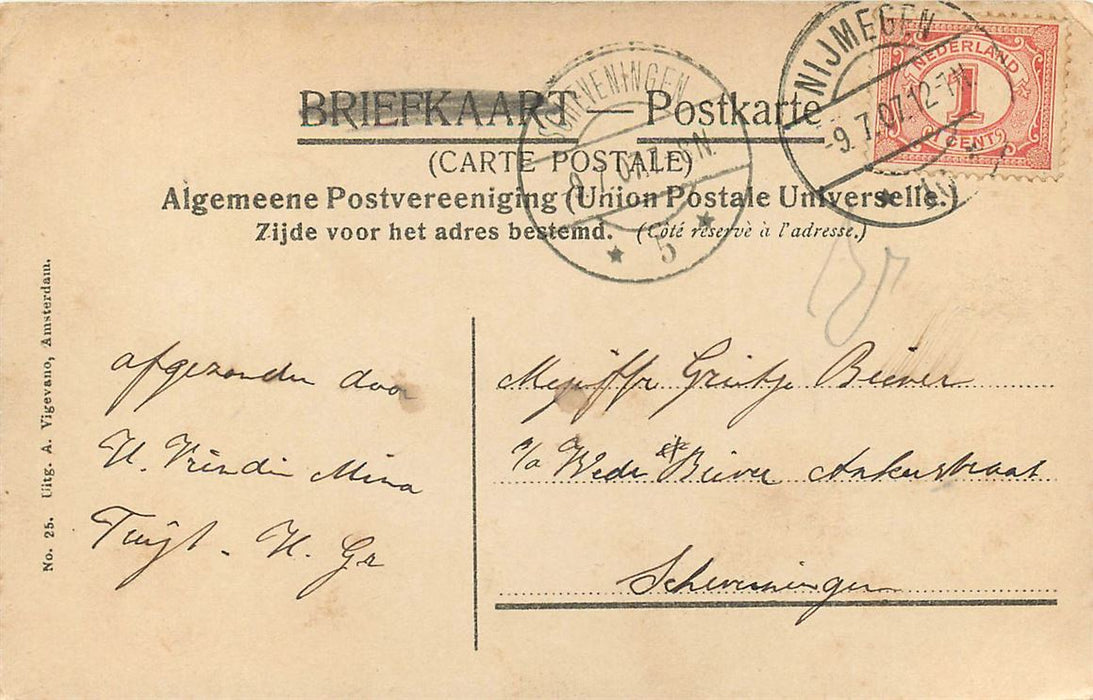 BRIEFKAART — Postkarte
(CARTE POSTALE)
Algemeene Postvereeniging (Union Postale Universelle.)
Zijde voor het adres bestemd. (Côté réservè à l'adresse.)
SCHEVENINGEN
5
NIJMEGEN
-9.7.07.12-1N.
NEDERLAND
1
CENT
No. 25. Uitg. A. Vigevano, Amsterdam.
afgezonden door
U. Vriendin Mina
Tuijt - H. Gr
Mejuffr Grietje Biever
c/o Wede Biever Ankerstraat
Scheveningen